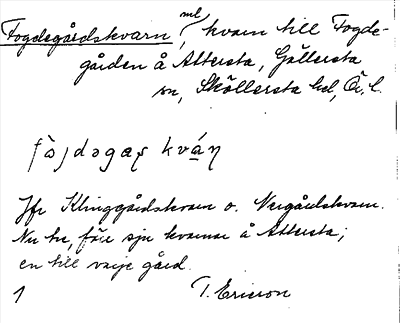 Fogdegårdskvarn, ml kvarn till Fogde-
gården å Attersta, Gällersta
sn, Sköllersta hd, Ö. l.
fò̀gdəgaʂ kvá̱ɳ
Jfr Klinggårdskvarn o. Nergårdskvarn.
Nu tre, förr sju kvarnar å Attersta;
en till varje gård.
1 T. Ericson